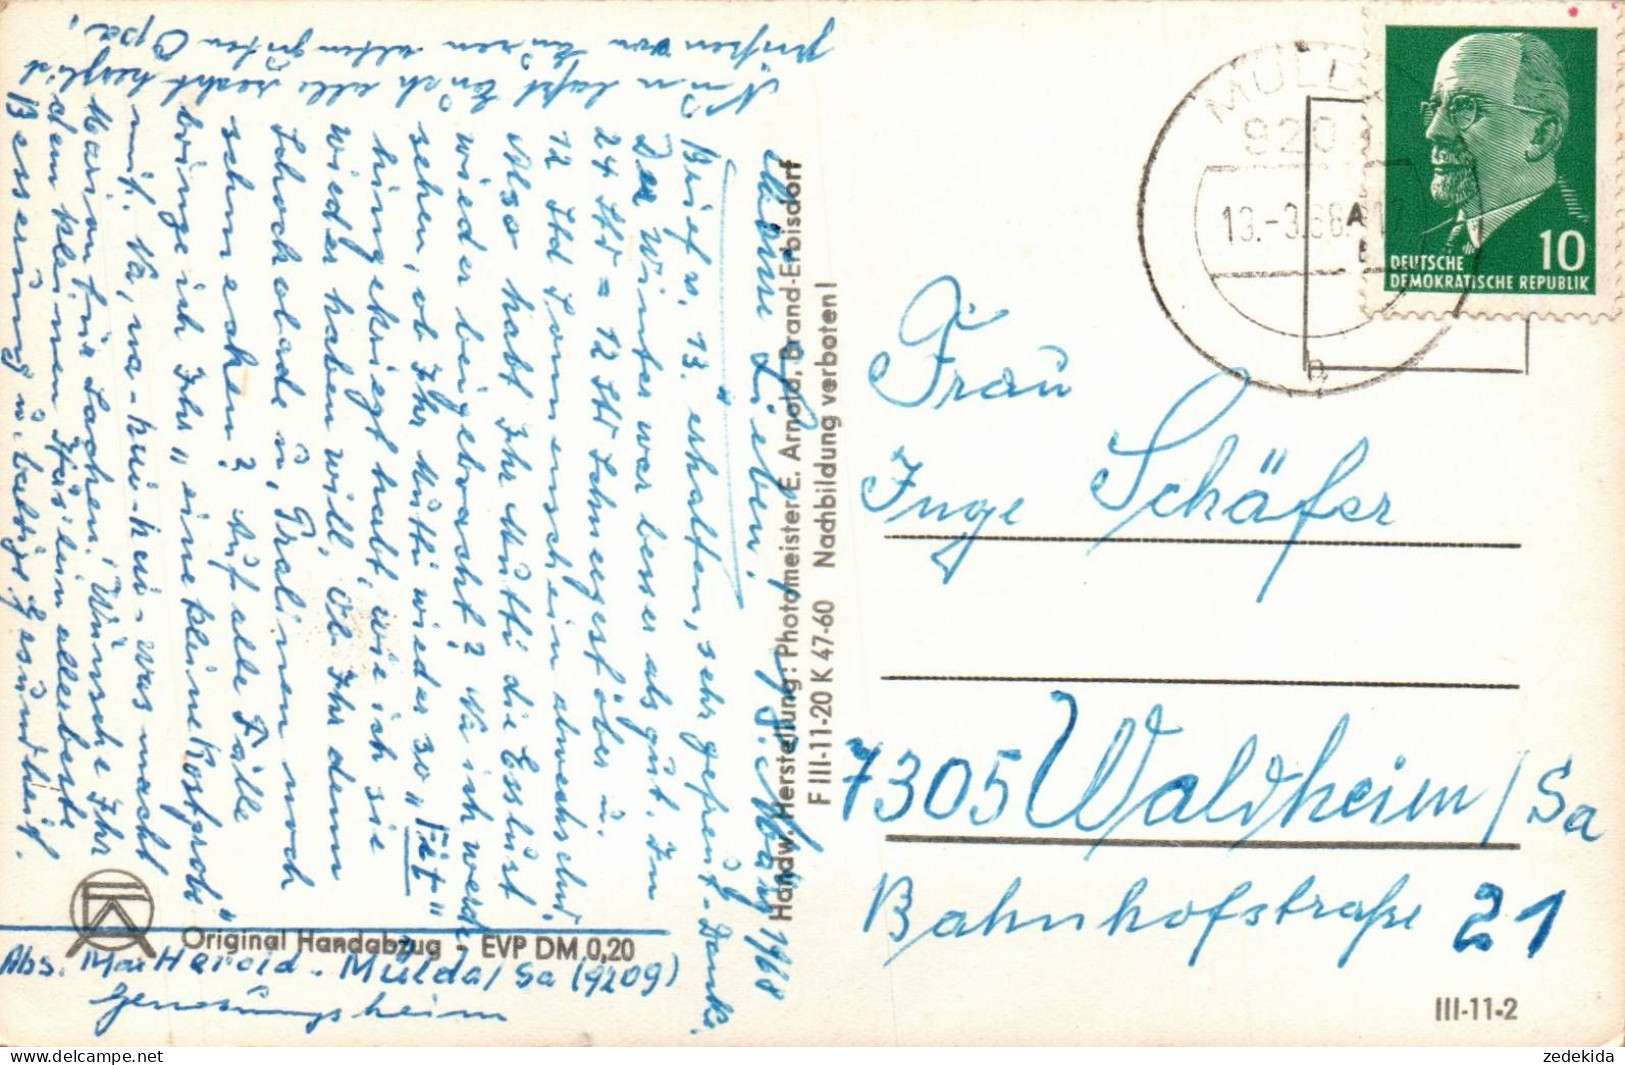 Meine Lieben! 1968
Brief v. 13. erhalten, sehr gefreut. Danke.
Der Winter war besser als gut. In
24 Std = 12 Std Schneegestöber u.
12 Std Sonnenschein abwechselnd.
Also habt Ihr Mutti die Esslust
wieder beigebracht? Na ich werde
sehen, ob Ihr Mutti wieder so "Fit"
hingekriegt habt, wie ich sie
wieder haben will. Ob Ihr denn
Schockolade u. Pralinen noch
schmecken? Auf alle Fälle
bringe ich Ihr "eine kleine Kostprobe"
mit. Na, was macht
Marion für Sachen. Wünsche Ihr
dem kleinen allerbeste
Besserung u. baldige Gesundheit.
Nun laßt Euch alle recht herzlich
grüßen von Euren alten guten Opa,
Handw. Herstellung: Photomeister E. Arnold, Brand-Erbisdorf
F III-11-20 K 47-60 Nachbildung verboten!
Original Handabzug - EVP DM 0,20
Abs. Max Herold - Mulda/Sa (9209)
Genesungsheim
MULDA
920
13.-3.68
a
10
DEUTSCHE
DEMOKRATISCHE REPUBLIK
Frau
Inge Schäfer
7305 Waldheim/Sa
Bahnhofstraße 21
III-11-2
zedekida